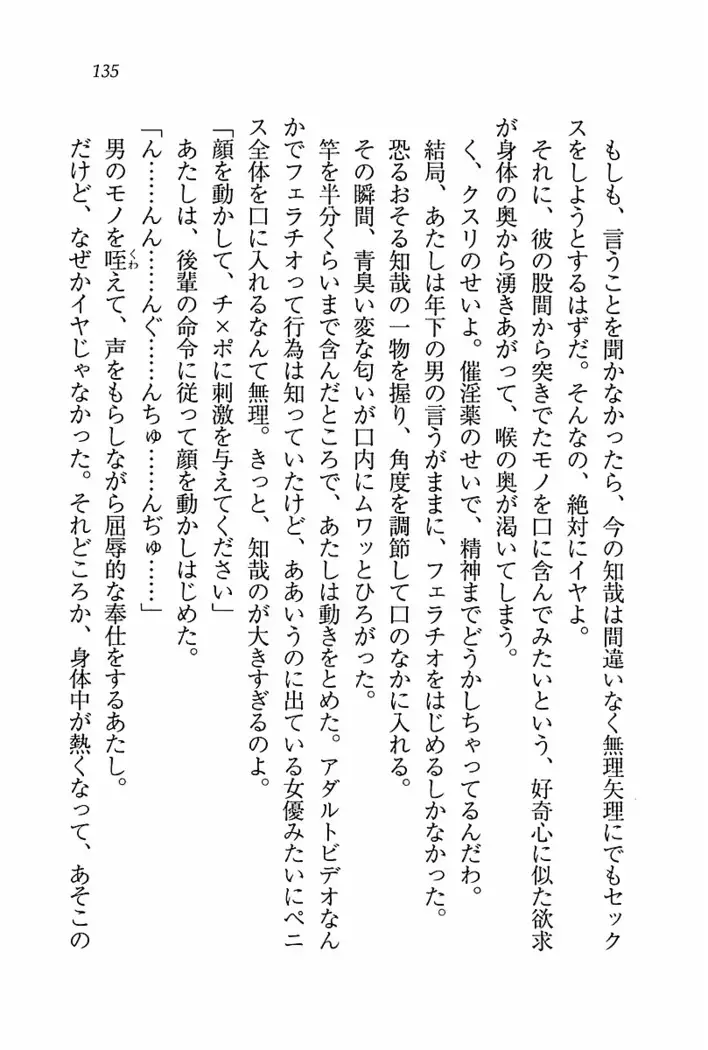 135
もしも、言うことを聞かなかったら、今の知哉は間違いなく無理矢理にでもセック
スをしようとするはずだ。そんなの、絶対にイヤよ。
それに、彼の股間から突きでたモノを口に含んでみたいという、好奇心に似た欲求
が身体の奥から湧きあがって、喉の奥が渇いてしまう。
く、クスリのせいよ。催淫薬のせいで、精神までどうかしちゃってるんだわ。
結局、あたしは年下の男の言うがままに、フェラチオをはじめるしかなかった。
恐るおそる知哉の一物を握り、角度を調節して口のなかに入れる。
その瞬間、青臭い変な匂いが口内にムワッとひろがった。
竿を半分くらいまで含んだところで、あたしは動きをとめた。アダルトビデオなん
かでフェラチオって行為は知っていたけど、ああいうのに出ている女優みたいにペニ
ス全体を口に入れるなんて無理。きっと、知哉のが大きすぎるのよ。
「顔を動かして、チ×ポに刺激を与えてください」
あたしは、後輩の命令に従って顔を動かしはじめた。
「ん……んん……んぐ……んちゅ……んぢゅ……」
男のモノを咥くわえて、声をもらしながら屈辱的な奉仕をするあたし。
だけど、なぜかイヤじゃなかった。それどころか、身体中が熱くなって、あそこの